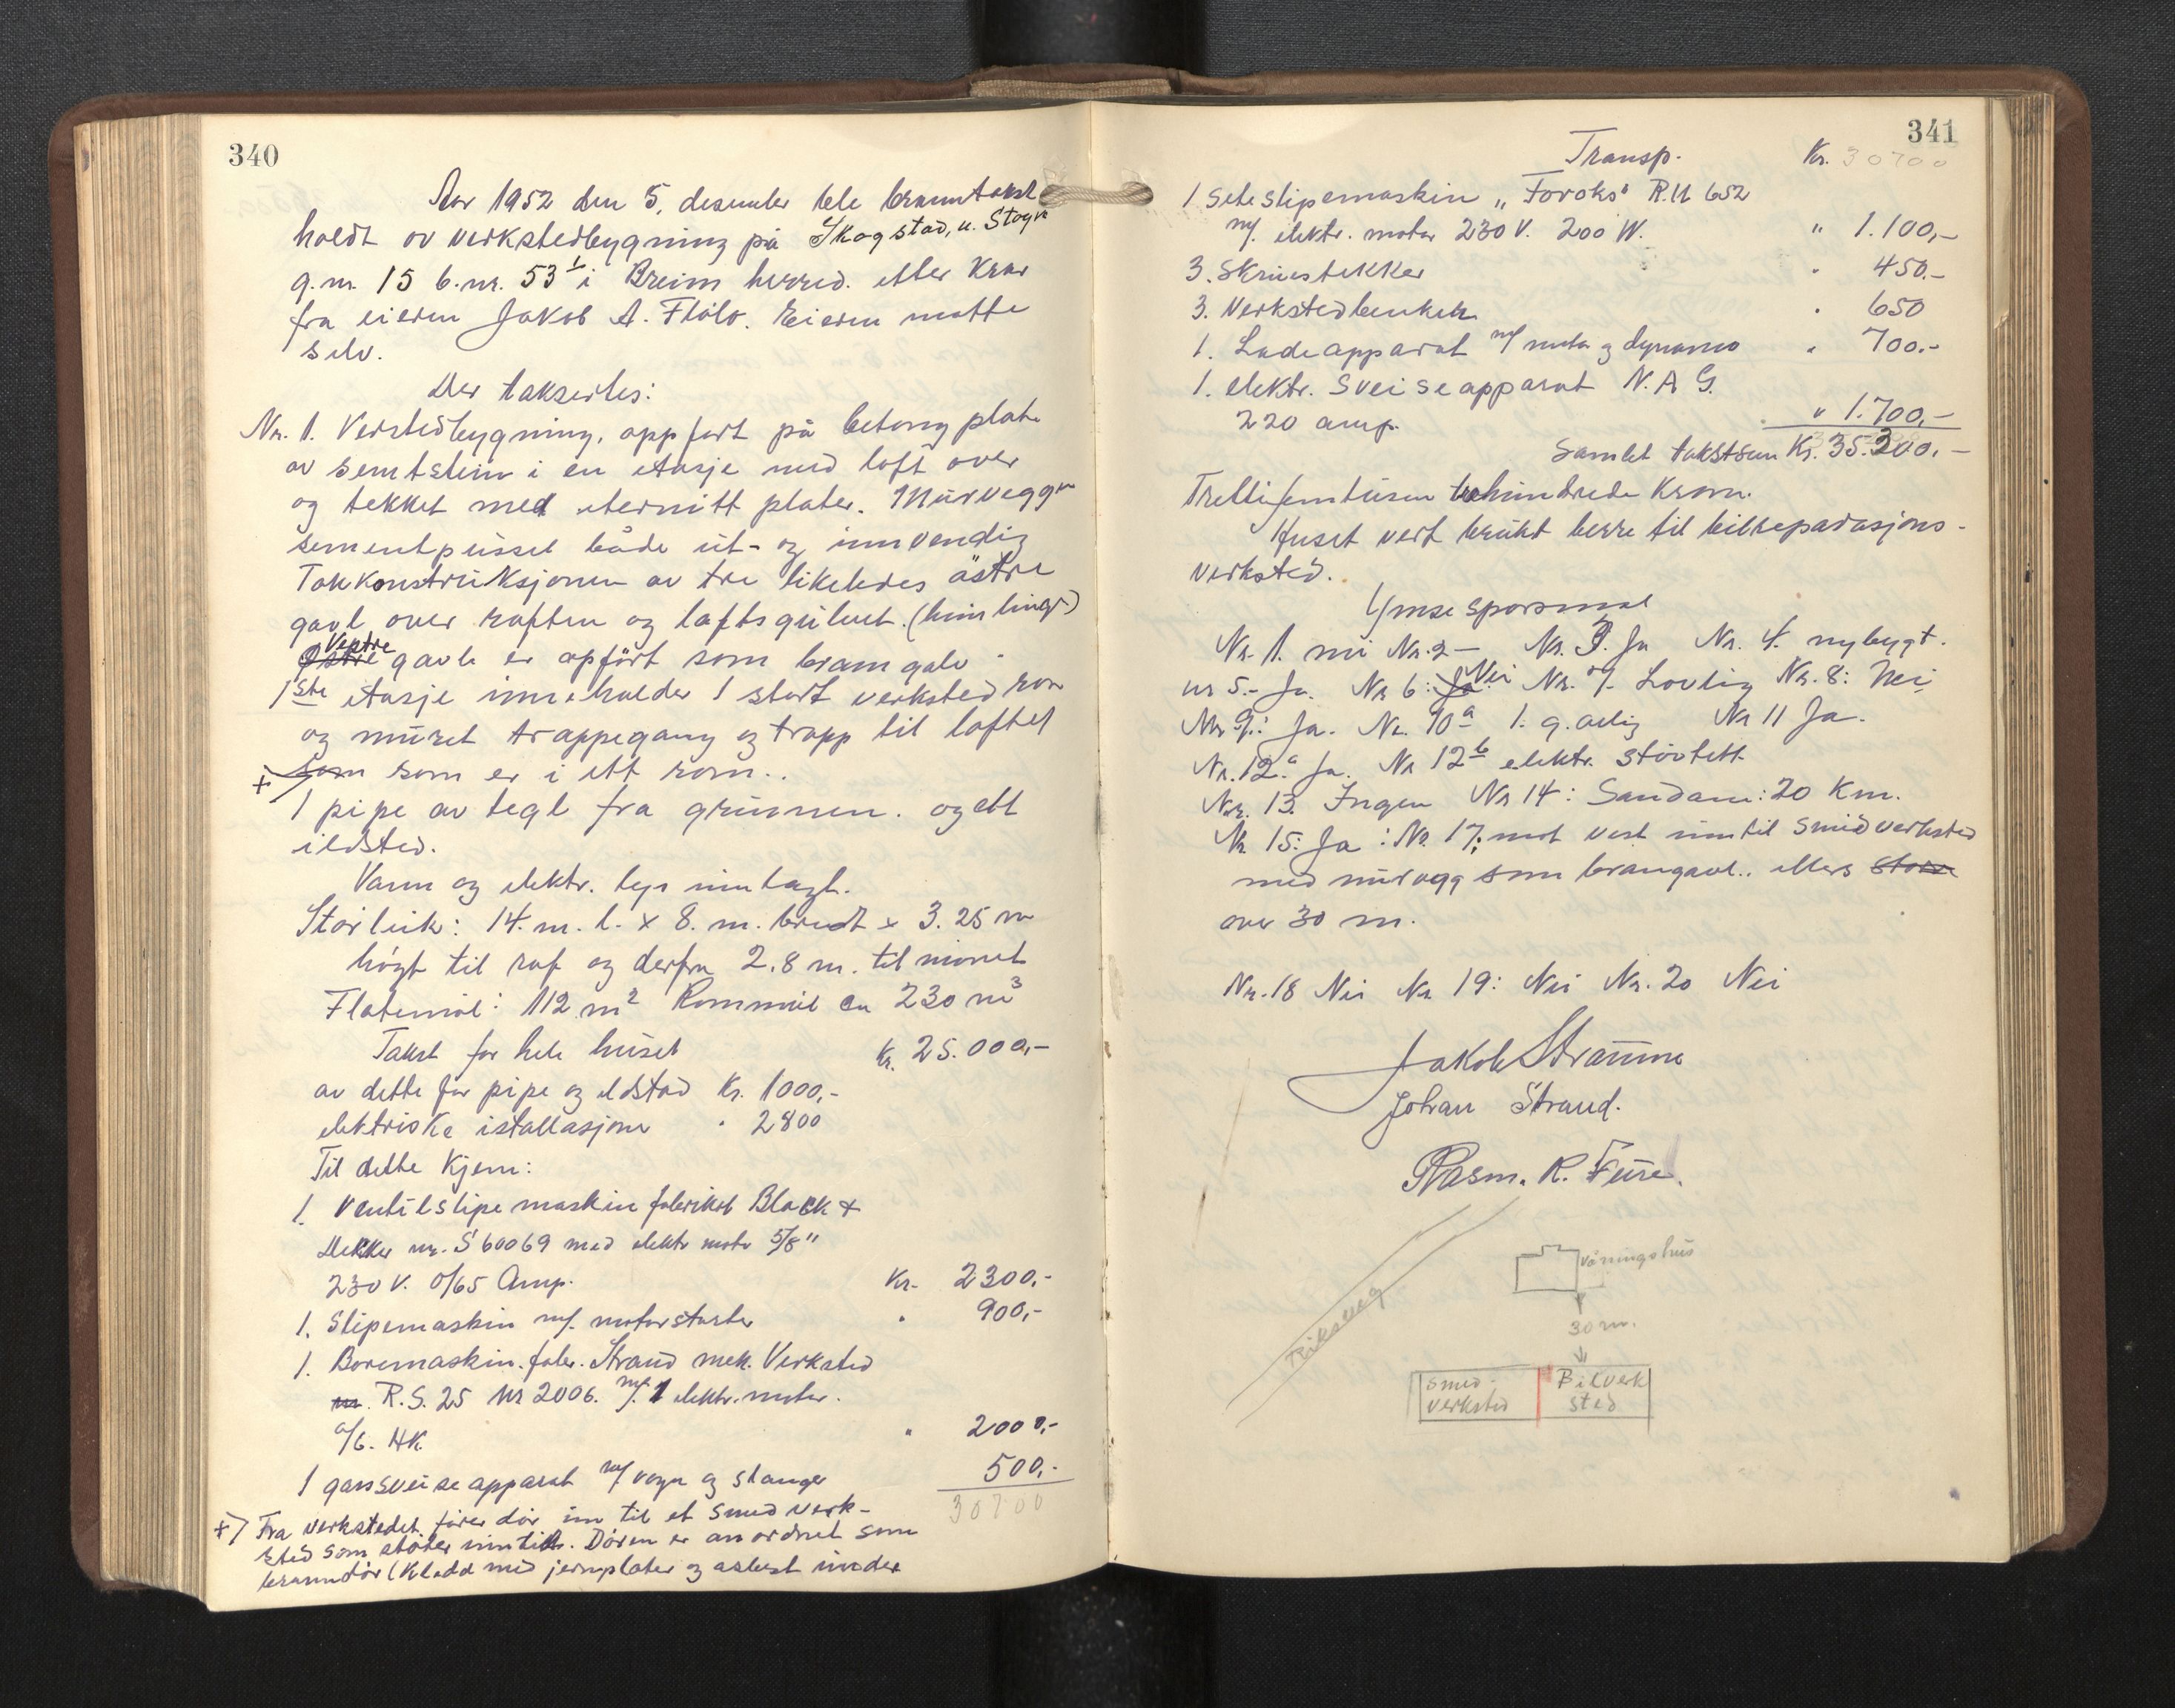 340
Aar 1952 den 5. desember ble branntakst
holdt av verkstedbygning på Skogstad, u. Stogv
g.nr. 15 b.nr. 53 1 i Breim herred. etter Krav
fra eieren Jakob A. Flølo. Eieren møtte
selv.
Der taksertes:
Nr. 1. Verstedbygning, oppført på betong plate
av semtstein i en etasje med loft over
og tekket med eternitt plater. Murvegg
sementpusset både ut- og innvendig
Takkonstruksjonen av tre likeledes östre
gavl over raften og loftsgulvet. (himling)
Östre Vestre gavle er opført som branngalv.
1ste etasje inneholder 1 stort verksted rom
og muret trappegang og trapp til loftet
+ som som er i ett rom..
1 pipe av tegl fra grunnen. og ett
ildsted.
Vann og elektr. lys inntagt.
Störleik: 14. m. l. x 8. m. bredt x 3.25 m
högt til raf og derfra 2.8 m. til mönet
Flatemål: 112 m² Rommål ca 230 m³
Takst for hele huset Kr. 25.000,-
av dette for pipe og eldstad Kr. 1000,-
elektriske istallasjone " 2800
Til dette Kjem:
1. Ventilslipemaskin fabrikat Black &
Dekker nr. S 60069 med elektr motor 5/8"
230 V. 0/65 Amp. Kr. 2300,-
1. Slipemaskin m/. motorstarter " 900,-
1. Boremaskin. fabr. Strand mek. Verksted
nr. R.S. 25 Nr 2006. m/. 1 elektr. motor.
0/6. HK. " 2000,-
1 gassveiseapparat m/ vogn og slanger 500,-
30700
+) Fra verkstedet fører dör inn til et smedverk-
sted som støter inntill. Dören er anordnet som
branndør (Kledd med jernplater og asbest under
341
Transp. Kr. 30700
1 Seteslipemaskin "Foroks" R.U 652
m/. elektr. motor 230 V. 200 W. " 1.100,-
3. Skruestikker " 450.-
3. Verkstedbenker " 650
1. Ladeapparat m/ motor og dynamo " 700.-
1. elektr. Sveiseapparat N.A G.
220 amp. " 1.700,-
Samlet takstsum Kr. 35.300,-
Trettifemtusen trehundrede Kroner.
Huset vert brukt berre til bilreparasjons-
verksted.
Ymse spørsmål
Nr. 1. nei Nr. 2 - Nr. 3. Ja Nr. 4. nybygt.
nr 5.- Ja. Nr 6: Ja Nei Nr. 7. Lovlig Nr. 8: Nei
Nr 9: Ja. Nr. 10 a 1. g. årlig Nr 11 Ja.
Nr. 12. a Ja. Nr 12 b elektr. stövtett
Nr. 13. Ingen Nr 14: Sandane: 20 Km.
Nr 15: Ja : Nr. 17: mot vest inntil smidverksted
med murvegg som branngavl.. ellers støre
over 30 m.
Nr. 18 Nei Nr 19: Nei Nr. 20 Nei
Jakob Straume
Johan Strand.
Rasm. R. Fure.
Riksveg
våningshus
30 m.
smed-
verksted
Bilverk
sted